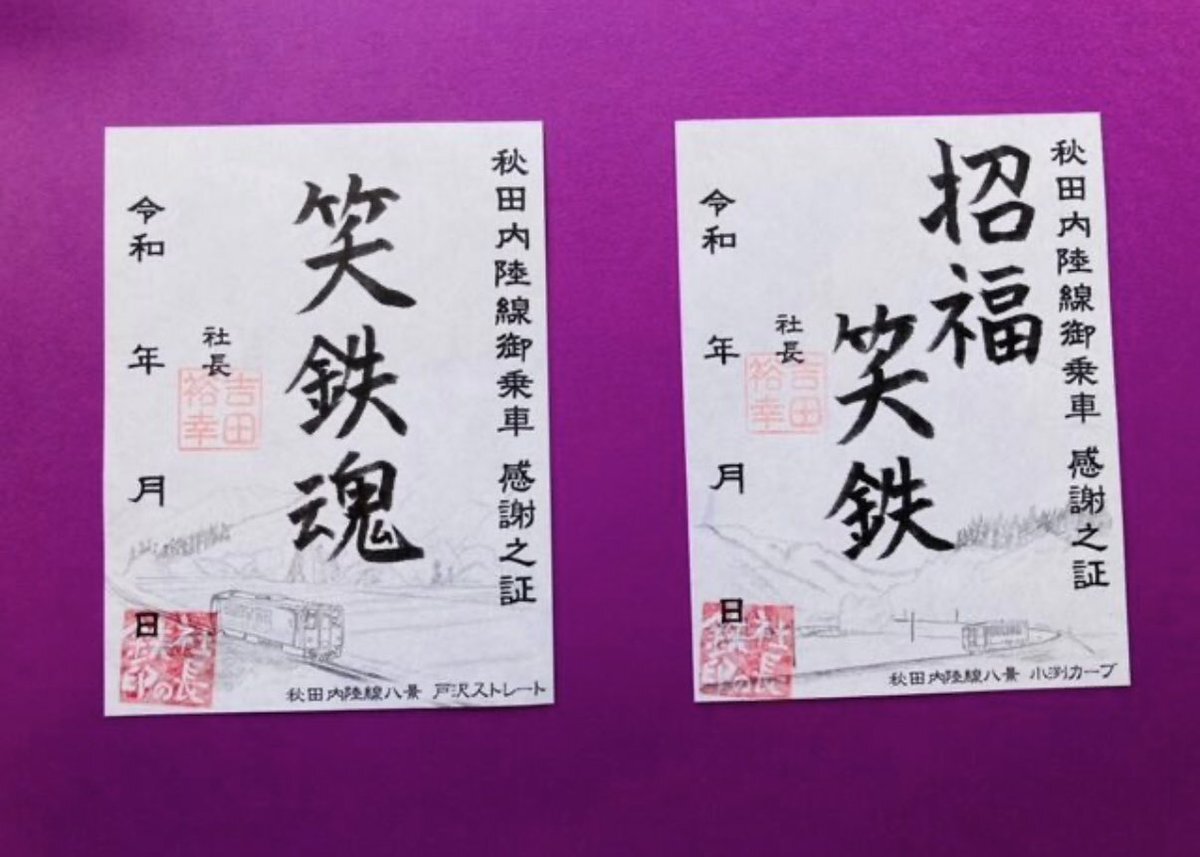 秋田内陸線御乗車 感謝之証
笑鉄魂
社長
吉田
裕幸
令和 年 月 日
社長の
鉄印
秋田内陸線八景 戸沢ストレート
秋田内陸線御乗車 感謝之証
招福
笑鉄
社長
吉田
裕幸
令和 年 月 日
社長の
鉄印
秋田内陸線八景 小渕カーブ